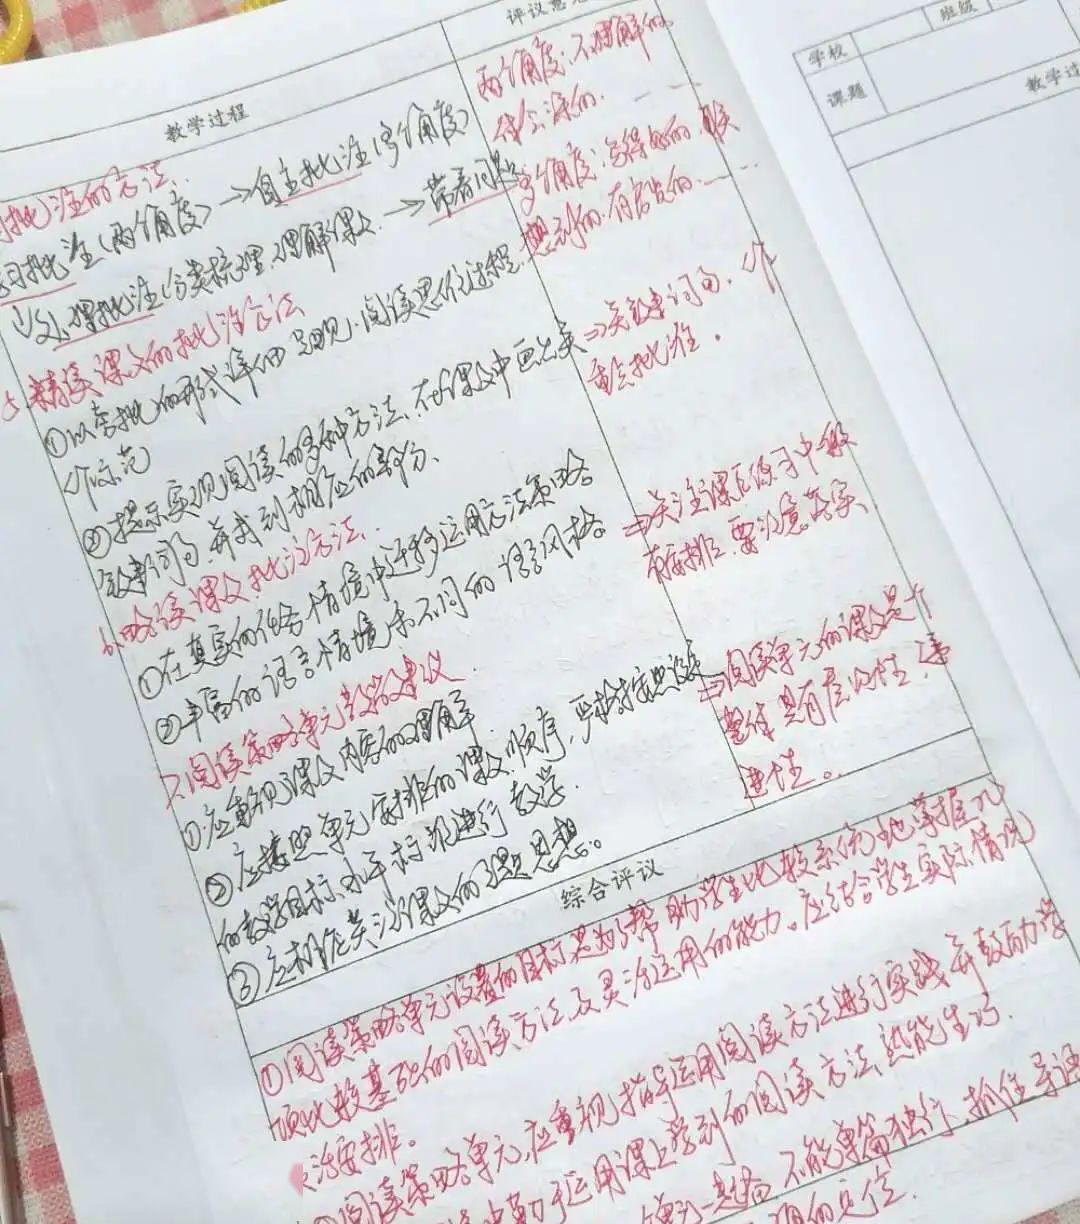 评议意见
教学过程
批注的方法
学习批注(两个角度)→自主批注(多个角度)
处理批注(分类梳理,理解课文.→带着问题
5.精读课文的批注方法
①以旁批的形式详细呈现.阅读思维过程.
个示范
②提示实现阅读的多种方法,在课文中画出关
键词句,并找到相应的部分、
6.略读课文批注方法.
①在真实的任务情境中迁移运用方法策略。
②丰富的语言情境和不同的语言风格。
7.阅读策略单元教学建议
①应重视课文内容的理解
②应按照单元安排的课文顺序,严格按照
的教学目标、水平标准进行教学.
③应相应关注课文的 思想。
两个角度:不理解的.
体会深的.
多个角度:写得好的,联
想到的.有启发的.……
⇒关键词句.个
重点批注.
⇒关注课后练习中般
有安排,要注意落实
⇒阅读单元的课文是个
整体 具有层次性,递
进性。
综合评议
①阅读策略单元设置的目标是为了帮助学生比较系统地掌握几
项比较基础的阅读方法及灵活运用的能力。应结合学生实际情况
灵活安排。
②阅读策略单元,应重视指导运用阅读方法进行实践并鼓励学
主动运用课上学到的阅读方法,熟能生巧.
单元一起看 不能单篇独行,抓住导语
的定位.
学校
班级
课题
教学过